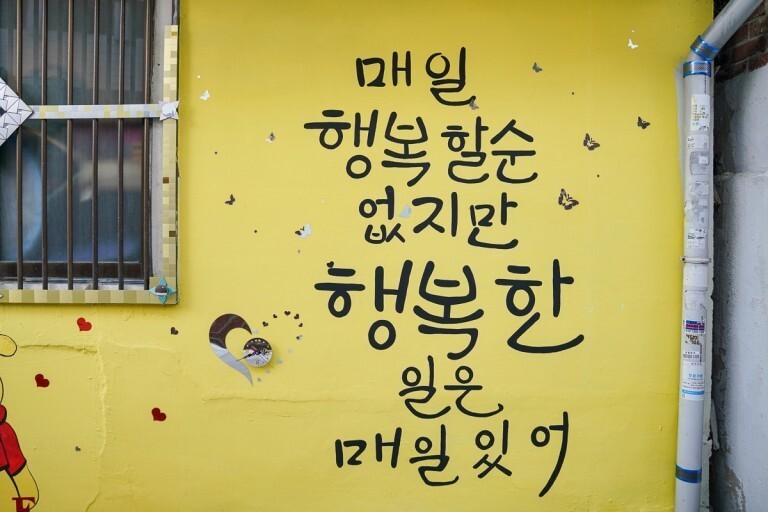 매일
행복 할순
없지만
행복한
일은
매일 있어
E